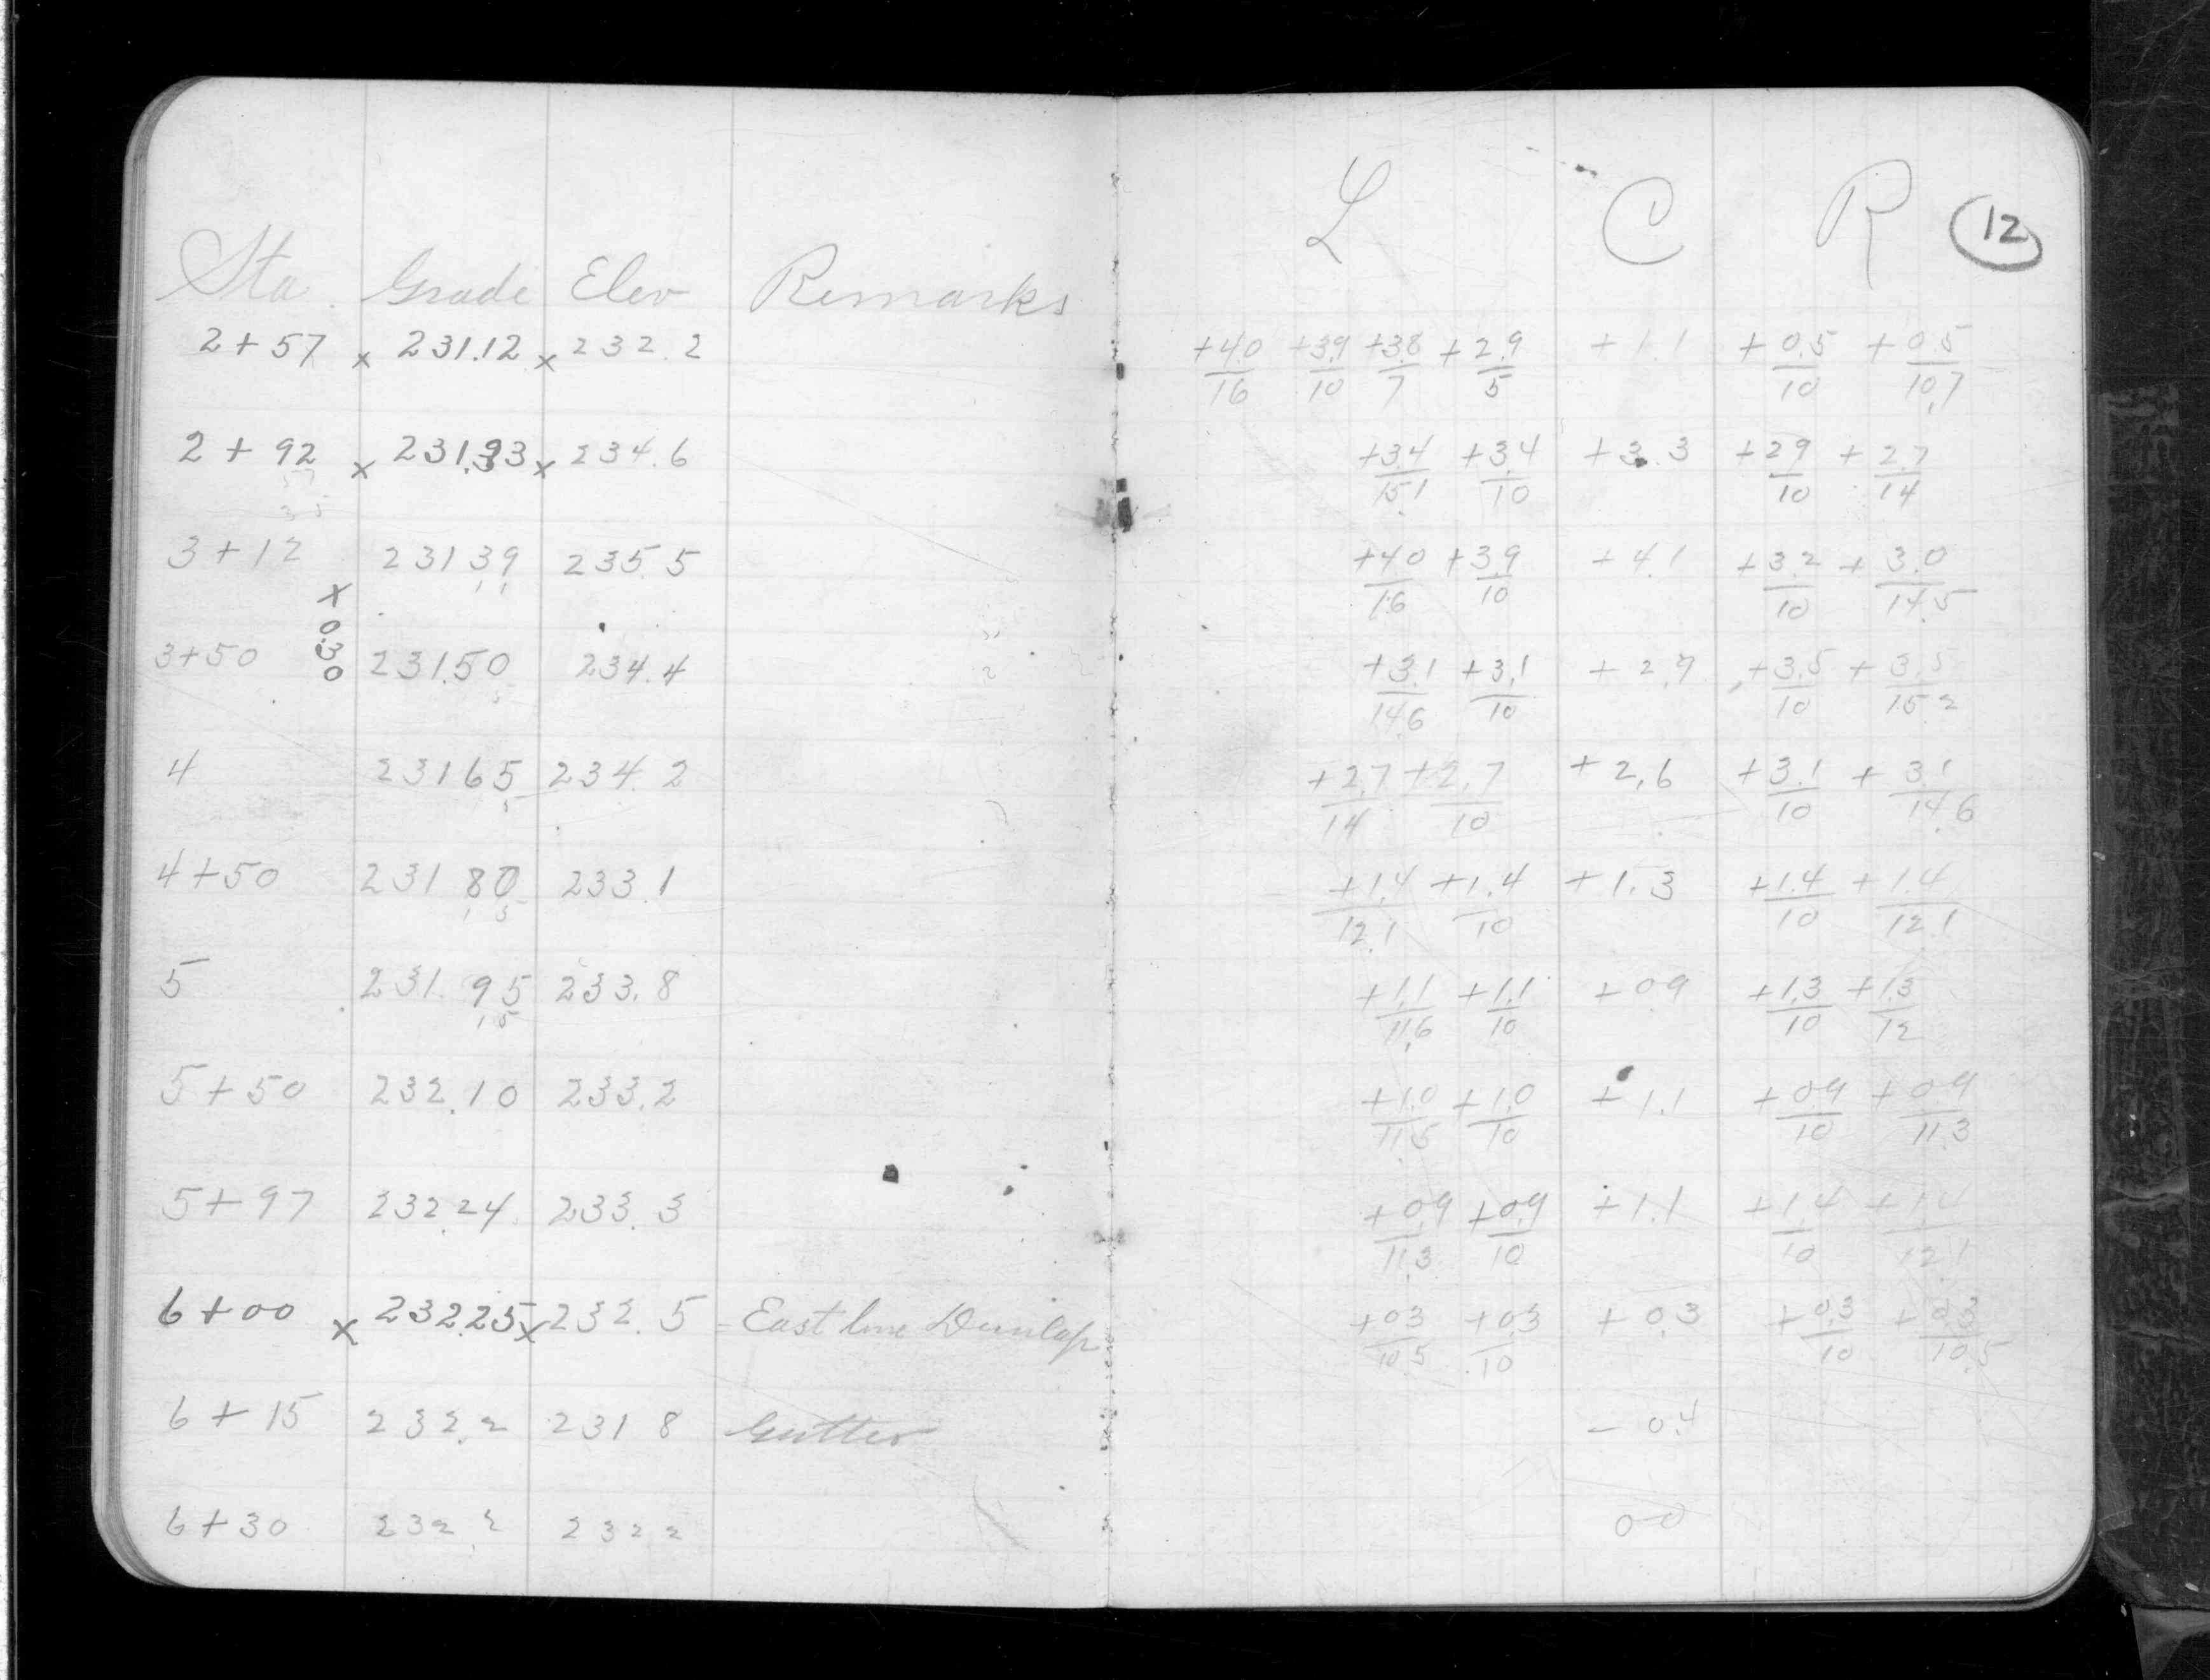 L C R 12
Sta. Grade Elev Remarks
2+57 x 231.12 x 232.2 +4.0/16 +3.9/10 +3.8/7 +2.9/5 +1.1 +0.5/10 +0.5/10.7
2+92 x 231.33 x 234.6 +3.4/15.1 +3.4/10 +3.3 +2.9/10 +2.7/14
35
3+12 231.39 235.5 +4.0/16 +3.9/10 +4.1 +3.2/10 +3.0/14.5
x 0.30
3+50 231.50 234.4 +3.1/14.6 +3.1/10 +2.9 +3.5/10 +3.5/15.2
4 231.65 234.2 +2.7/14 +2.7/10 +2.6 +3.1/10 +3.1/14.6
4+50 231.80 233.1 +1.4/12.1 +1.4/10 +1.3 +1.4/10 +1.4/12.1
15
5 231.95 233.8 +1.1/11.6 +1.1/10 +0.9 +1.3/10 +1.3/12
15
5+50 232.10 233.2 +1.0/11.5 +1.0/10 +1.1 +0.9/10 +0.9/11.3
5+97 232.24 233.3 +0.9/11.3 +0.9/10 +1.1 +1.4/10 +1.4/12.1
6+00 x 232.25 x 232.5 = East line Dunlap +0.3/10.5 +0.3/10 +0.3 +0.3/10 +0.3/10.5
6+15 232.2 231.8 Gutter -0.4
6+30 232.2 232.2 0.0